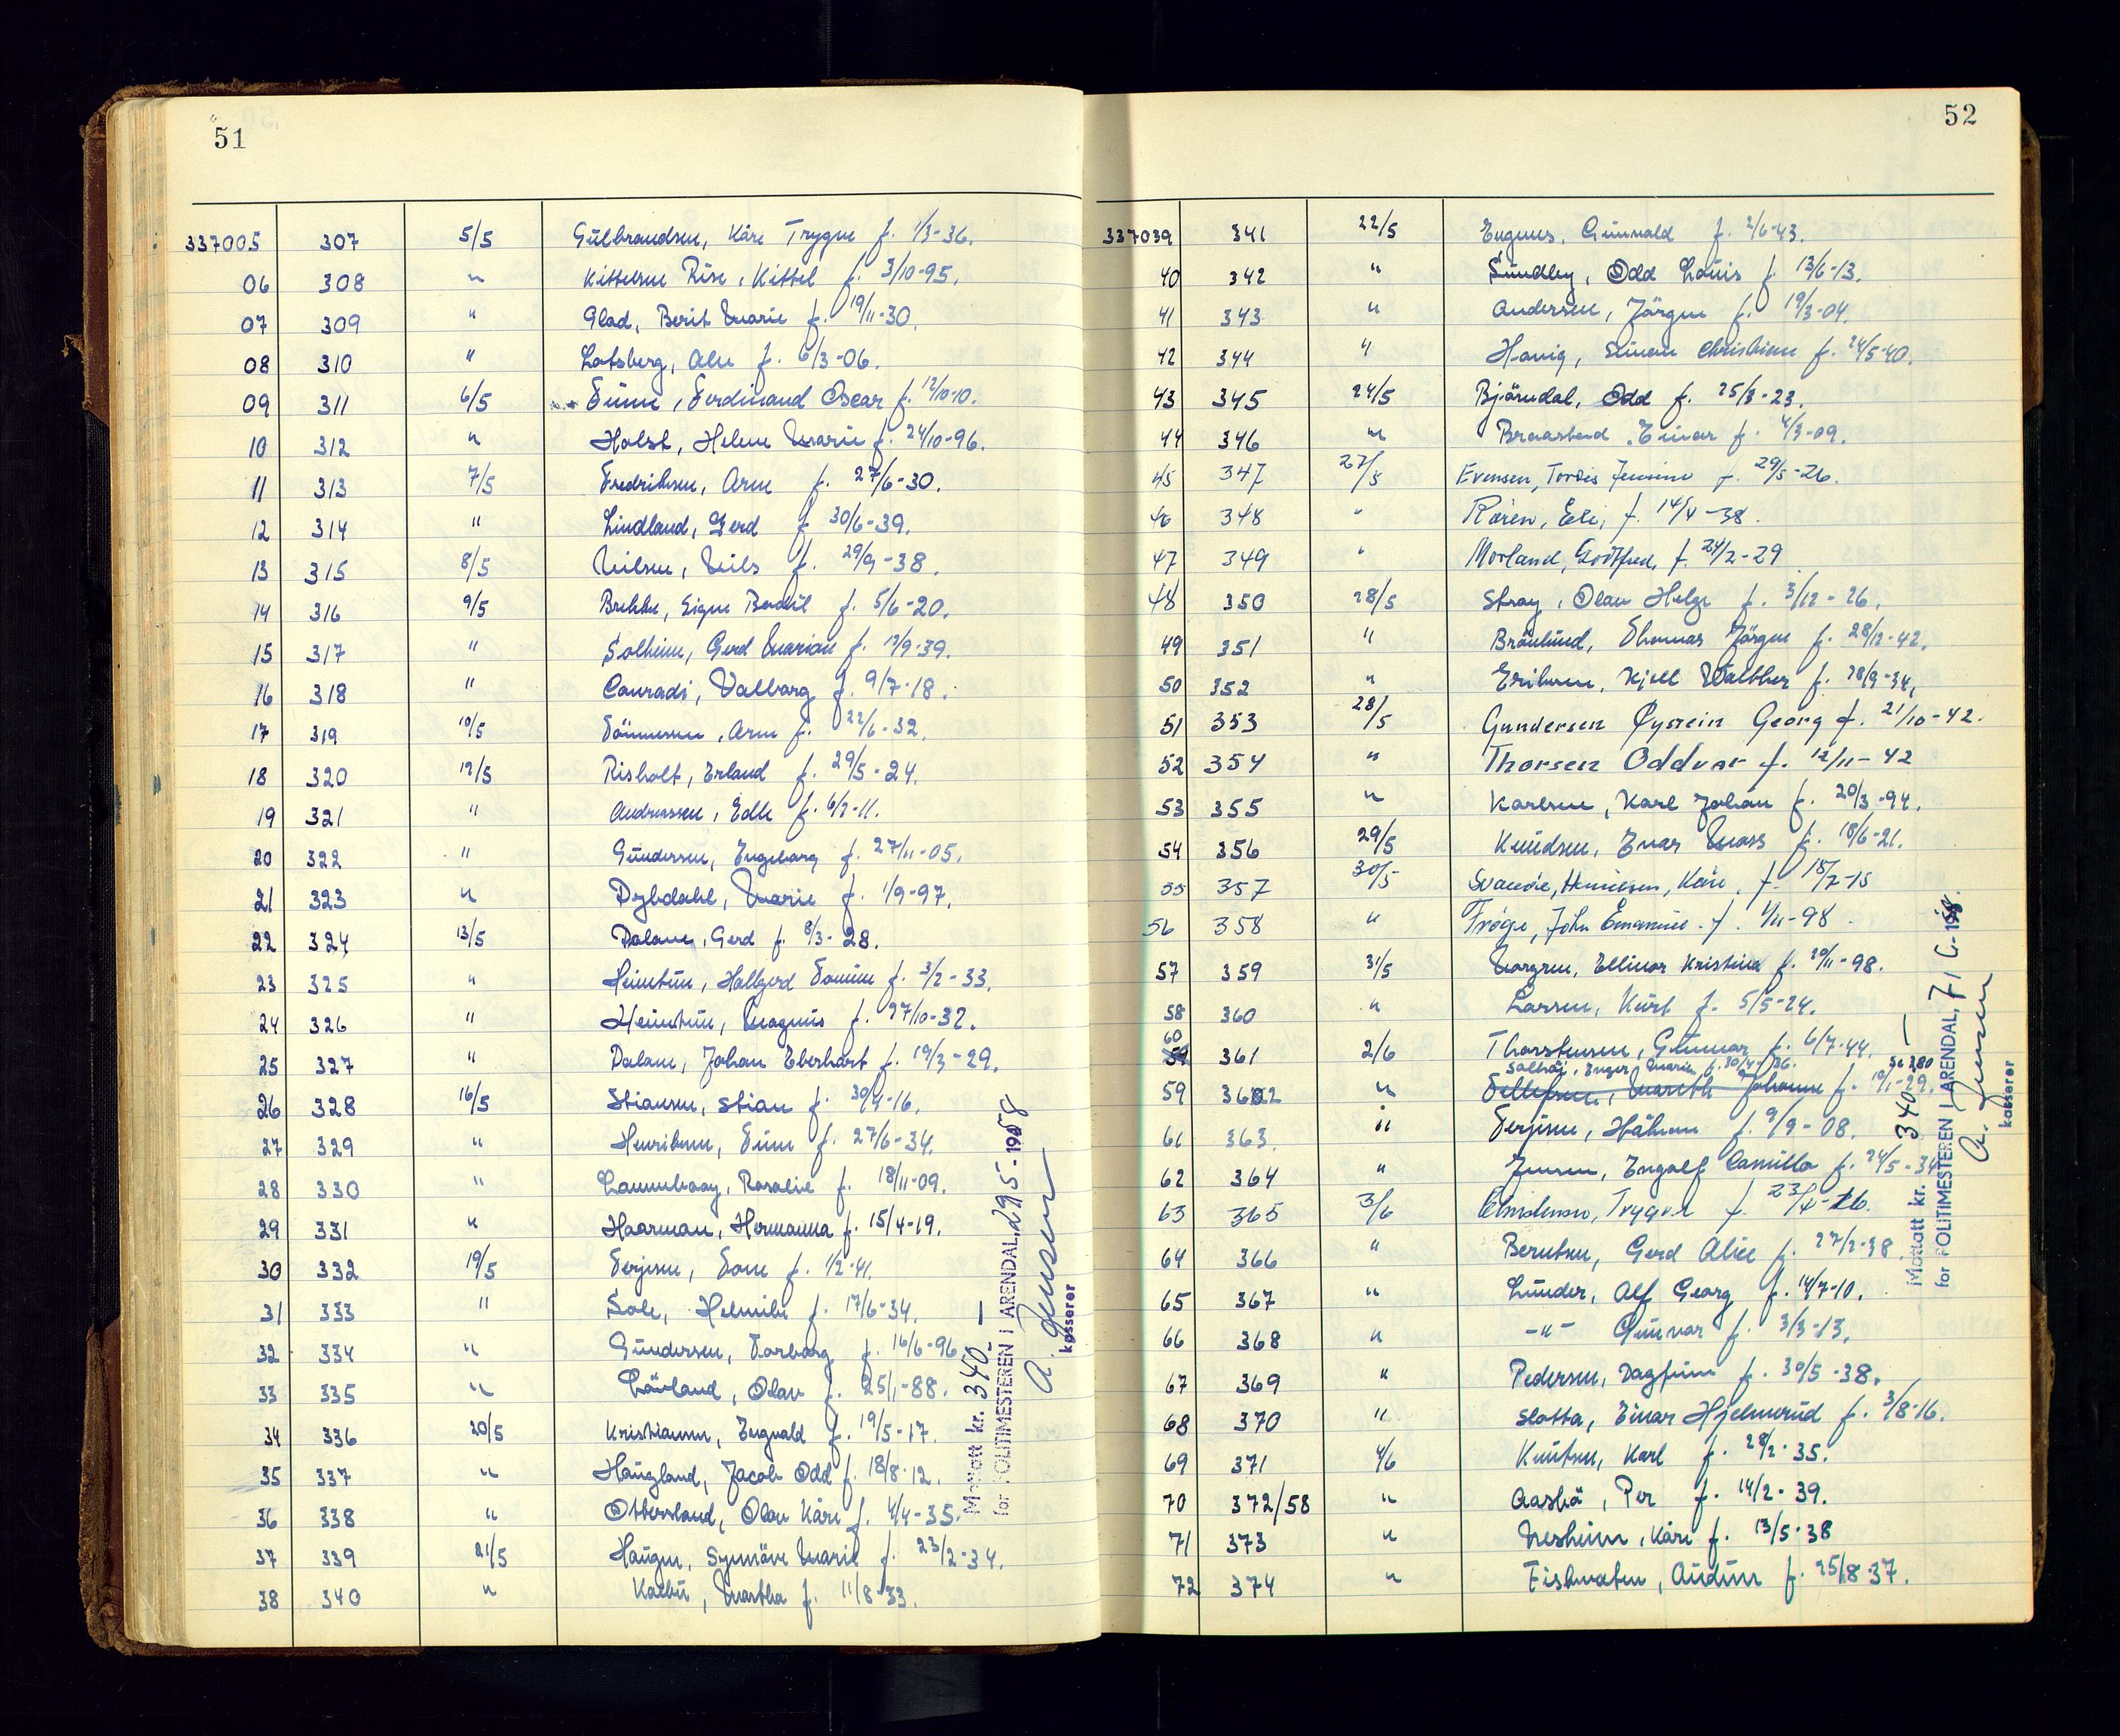 51
337005 307 5/5 Gülbrandsen, Kåre Trygve f. 1/3-36.
06 308 " Kittelsen Rise, Kittel f. 3/10-95.
07 309 " Glad, Berit Marie f. 19/11-30.
08 310 " Lotsberg, Alv f. 6/3-06.
09 311 6/5 Ferdinand Oscar f. 12/10-10.
10 312 " Holst, Helene Marie f. 24/10-96.
11 313 7/5 Fredriksen, Arne f. 27/6-30.
12 314 " Lindland, Gerd f. 30/6-39.
13 315 8/5 Nilsen, Nils f. 29/9-38.
14 316 9/5 Brekke, Signe Bodil f. 5/6-20.
15 317 " Solheim, Gerd Marion f. 12/9-39.
16 318 " Conradi, Valborg f. 9/7-18.
17 319 10/5 Tönnessen, Arne f. 22/6-32.
18 320 12/5 Risholt, Erland f. 29/5-24.
19 321 " Andreassen, Edle f. 6/2-11.
20 322 " Gündersen, Ingeborg f. 27/11-05.
21 323 " Dybdahl, Marie f. 1/9-97.
22 324 13/5 Dalane, Gerd f. 8/3-28.
23 325 " Heimtün, Hallgerd f. 3/2-33.
24 326 " Heimtün, Magnüs f. 27/10-32.
25 327 " Dalane, Johan Eberhart f. 19/3-29.
26 328 16/5 Stiansen, Stian f. 30/4-16.
27 329 " Henriksen, f. 27/6-34.
28 330 " Rosalie f. 18/11-09.
29 331 " Haarman, Hermanna f. 15/4-19.
30 332 19/5 Terjesen, Tone f. 1/2-41.
31 333 " Sole, f. 17/6-34.
32 334 " Gündersen, Torborg f. 16/6-96.
33 335 " Lövland, Olav f. 25/1-88.
34 336 20/5 Kristiansen, Ingvald f. 19/5-17.
35 337 " Haügland, Jacob Odd f. 18/8-12.
36 338 " Ottersland, Olav Kåre f. 4/4-35.
37 339 21/5 Haügen, Synnöve Marie f. 23/2-34.
38 340 " Martha f. 11/8-33.
Mottatt kr. 340.-
for POLITIMESTEREN I ARENDAL, 29/5-1958
A. Jensen
kasserer
52
337039 341 22/5 Günvald f. 2/6-43.
40 342 " Sündby, Odd Loüis f. 13/6-13.
41 343 " Andersen, Jörgen f. 19/3-04.
42 344 " Christian f. 24/5-40.
43 345 24/5 Björndal, Odd f. 25/3-23.
44 346 " Einar f. 4/3-09.
45 347 27/5 Evensen, Tordis Jensine f. 29/5-26.
46 348 " f. 14/4-38.
47 349 " Morland, Godtfred, f. 24/2-29
48 350 28/5 Stray, Olav Helge f. 3/12-26.
49 351 " Brönlünd, Thomas Jörgen f. 28/12-42.
50 352 " Eriksen, Kjell Walther f. 28/9-34.
51 353 28/5 Gundersen Øystein Georg f. 21/10-42.
52 354 " Thorsen Oddvar f. 12/11-42
53 355 " Karlsen, Karl Johan f. 20/3-94.
54 356 29/5 Knüdsen, Ivar Moss f. 18/6-21.
55 357 30/5 Kåre, f. 18/7-15
56 358 " John Emanuel f. 1/11-98.
57 359 31/5 Norgren, Ellinor Kristina f. 20/11-98.
58 360 " Larsen, Kürt f. 5/5-24.
60
59 361 2/6 Thorstensen, Günnar f. 6/7-44.
Solhöi, Inger Marie f. 30/4-36.
59 362 " Tellefsen, Mareth Johanne f. 10/1-29.
61 363. " Terjesen, Håkon f. 9/9-08.
62 364 " Jensen, Ingolf Camilla f. 24/5-34
63 365 3/6 Christensen, Trygve f. 23/4-26.
64 366 " Berntsen, Gerd Alice f. 27/2-38.
65 367 " Lünder, Alf Georg f. 14/7-10.
66 368 " -"- Günvor f. 3/3-13.
67 369 " Pedersen, Dagfinn f. 30/5-38.
68 370 " Slotta, Einar Hjelmerüd f. 3/8-16.
69 371 4/6 Knütsen, Karl f. 28/2-35.
70 372/58 " Aasbö, Per f. 14/2-39.
71 373 " Nesheim, Kåre f. 13/5-38
72 374 " Fiskvatn, Aüdün f. 25/8-37.
Mottatt kr. 340.-
for POLITIMESTEREN I ARENDAL, 7/6-1958
A. Jensen
kasserer